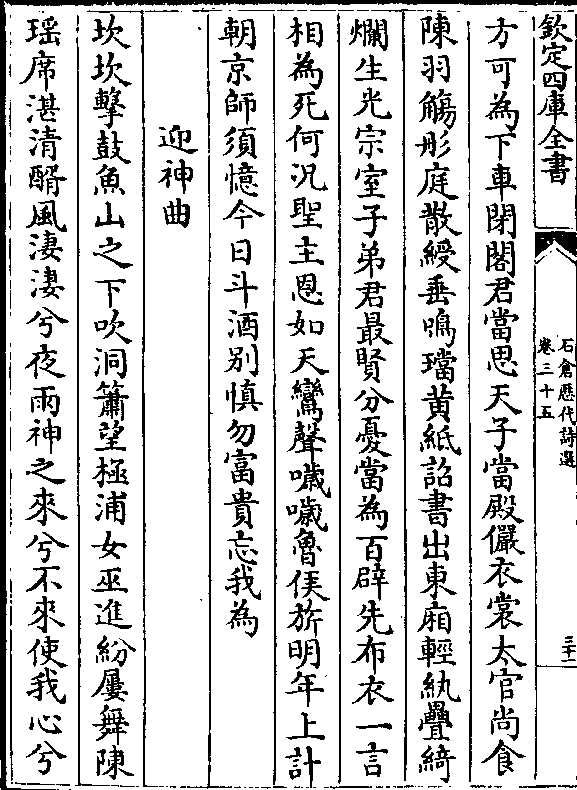 欽定四庫全書
石倉歷代詩選
卷三十五
三十二
方可為下車閉閤君當思天子當殿儼衣裳太官尚食
陳羽觴彤庭散綬垂鳴璫黄紙詔書出東廂輕紈疊綺
爛生光宗室子弟君最賢分憂當為百辟先布衣一言
相為死何況聖主恩如天鸞聲噦噦魯侯旂明年上計
朝京師須憶今日斗酒别慎勿富貴忘我為
迎神曲
坎坎擊鼓魚山之下吹洞簫望極浦女巫進紛屢舞陳
瑶席湛清醑風淒淒兮夜雨神之來兮不來使我心兮